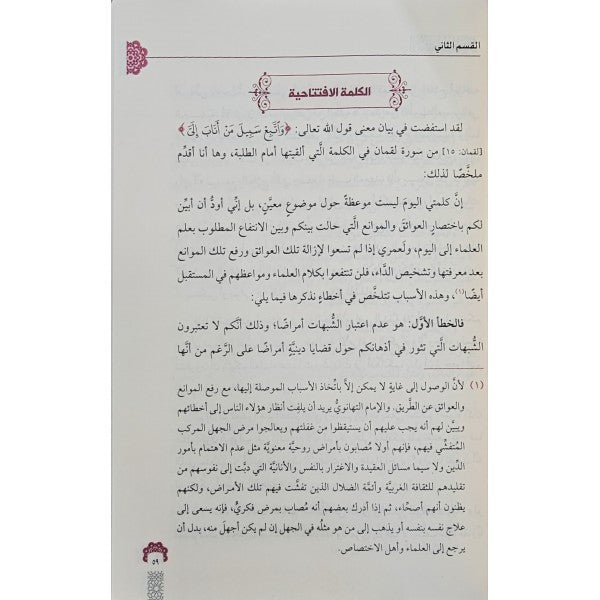 القسم الثاني
الكلمة الافتتاحية
لقد استفضت في بيان معنى قول الله تعالى: ﴿وَٱتَّبِعْ سَبِيلَ مَنْ أَنَابَ إِلَىَّ﴾
[لقمان: ١٥] من سورة لقمان في الكلمة الَّتي ألقيتها أمام الطلبة، وها أنا أقدِّم
ملخَّصًا لذلك:
إنَّ كلمتي اليومَ ليست موعظةً حول موضوعٍ معيَّنٍ، بل إنِّي أودُّ أن أبيِّن
لكم باختصارٍ العوائقَ والموانع الَّتي حالت بينكم وبين الانتفاع المطلوب بعلم
العلماء إلى اليوم، ولَعمري إذا لم تسعوا لإزالة تلك العوائق ورفع تلك الموانع
بعد معرفتها وتشخيص الدَّاء، فلن تنتفعوا بكلام العلماء ومواعظهم في المستقبل
أيضًا(١)، وهذه الأسباب تتلخَّص في أخطاءٍ نذكرها فيما يلي:
فالخطأ الأوَّل: هو عدم اعتبار الشُّبهات أمراضًا؛ وذلك أنَّكم لا تعتبرون
الشُّبهات الَّتي تثور في أذهانكم حول قضايا دينيَّةٍ أمراضًا على الرَّغم من أنَّها
(١) لأنَّ الوصول إلى غايةٍ لا يمكن إلاَّ باتِّخاذ الأسباب الموصلة إليها، مع رفع الموانع
والعوائق عن الطَّريق. والإمام التهانويُّ يريد أن يلفِت أنظار هؤلاء الناس إلى أخطائهم
ويبيِّن لهم أنه يجب عليهم أن يستيقظوا من غفلتهم ويعالجوا مرض الجهل المركب
المُتفشِّي فيهم، فإنهم أولا مُصابون بأمراض روحيَّة معنويَّة مثل عدم الاهتمام بأمور
الدِّين ولا سيما مسائل العقيدة والاغترار بالنفس والأنانيَّة التي دبَّت إلى نفوسهم من
تقليدهم للثقافة الغربيَّة وأئمَّة الضلال الذين تفشَّت فيهم تلك الأمراض، ولكنهم
يظنون أنهم أصحَّاء، ثم إذا أدرك بعضهم أنه مُصاب بمرض فكريٍّ، فإنه يسعى إلى
علاج نفسه بنفسه أو يذهب إلى من هو مثلُه في الجهل إن لم يكن أجهلَ منه، بدل أن
يرجع إلى العلماء وأهل الاختصاص.
٥٩